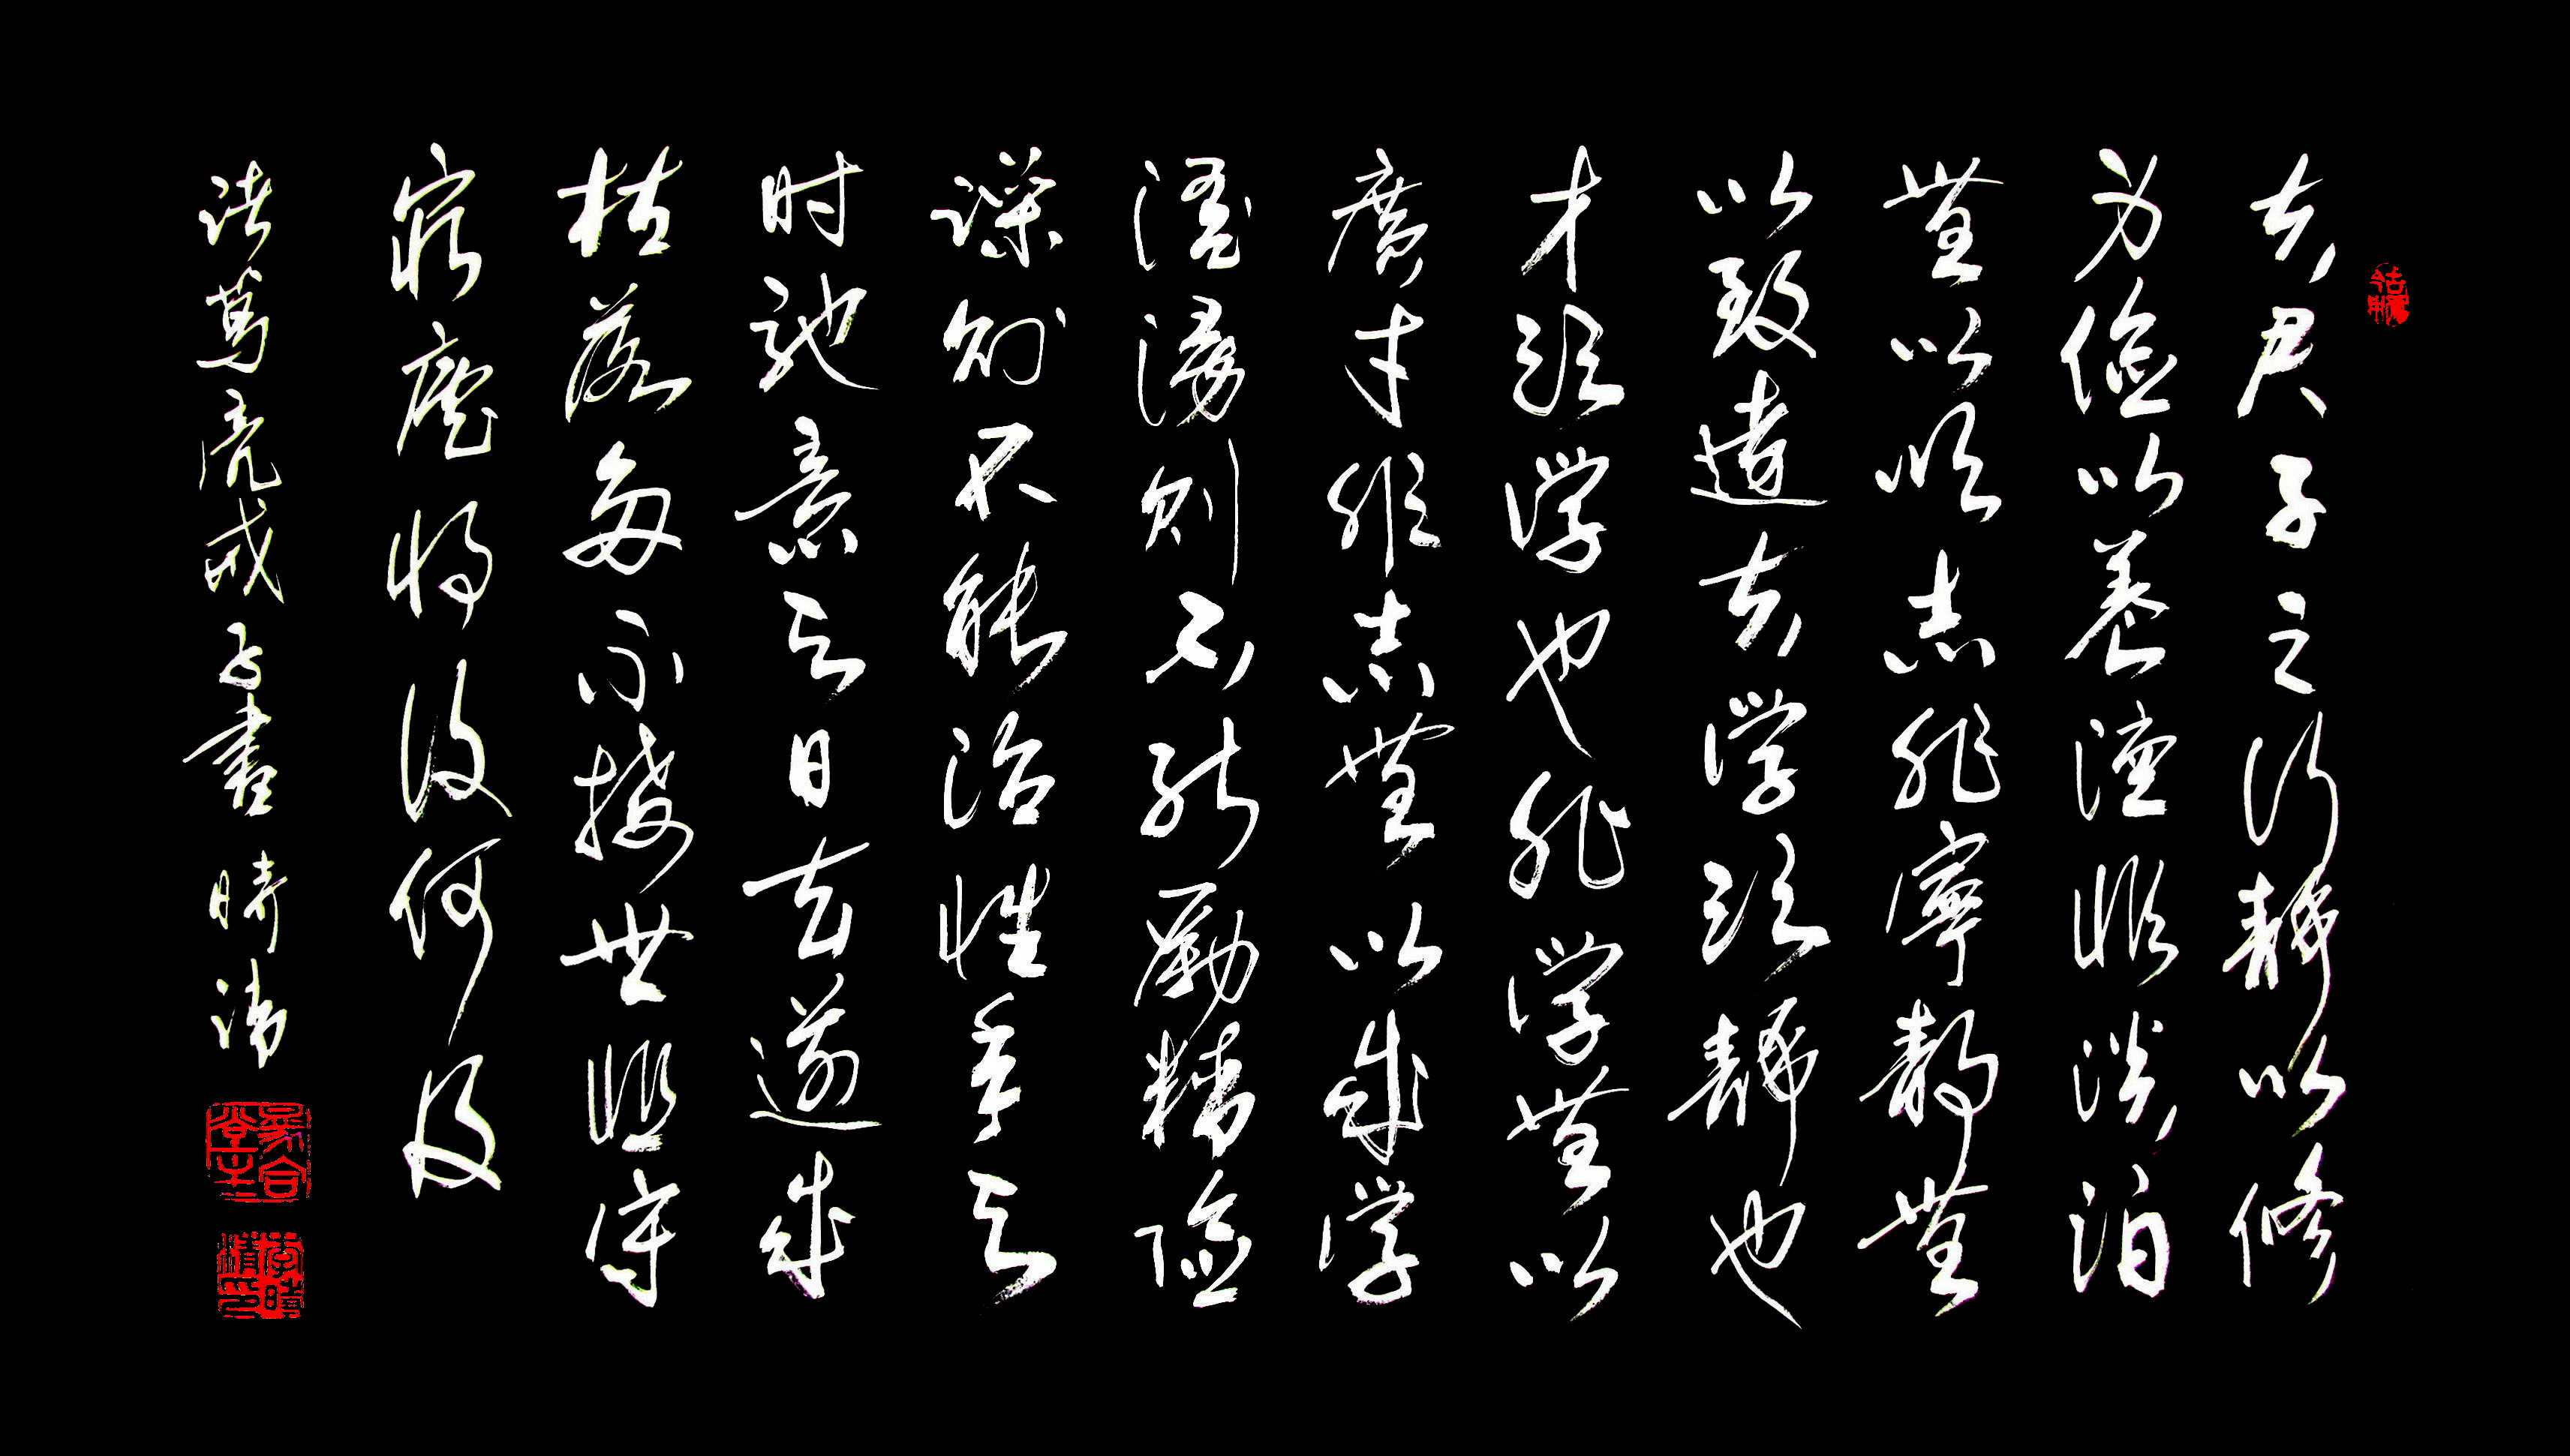 夫君子之行静以修
身儉以養德非淡泊
無以明志非寧静無
以致遠夫学須静也
才須学也非学無以
廣才非志無以成学
慢则不能励精险
躁则不能治性年与
时驰意与日去遂成
枯落多不接世悲守
窮廬将復何及
诸葛亮诫子書